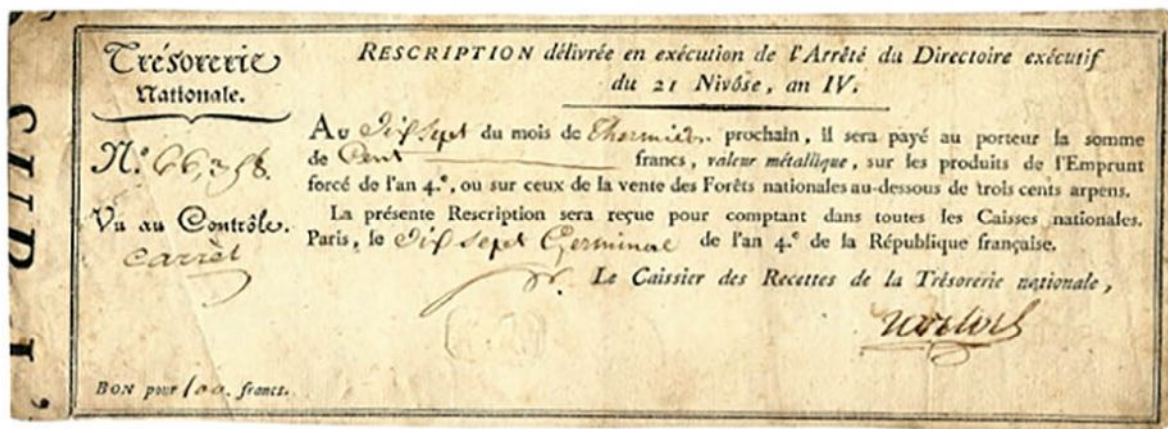 Trésorerie
Nationale.
N.º 66,358.
Vu au Contrôle.
Carret
BON pour 100. francs.
RESCRIPTION délivrée en exécution de l'Arrêté du Directoire exécutif
du 21 Nivôse, an IV.
Au Dix sept du mois de Thermidor prochain, il sera payé au porteur la somme
de Cent francs, valeur métallique, sur les produits de l'Emprunt
forcé de l'an 4.e, ou sur ceux de la vente des Forêts nationales au-dessous de trois cents arpens.
La présente Rescription sera reçue pour comptant dans toutes les Caisses nationales.
Paris, le Dix sept Germinal de l'an 4.e de la République française.
Le Caissier des Recettes de la Trésorerie nationale,